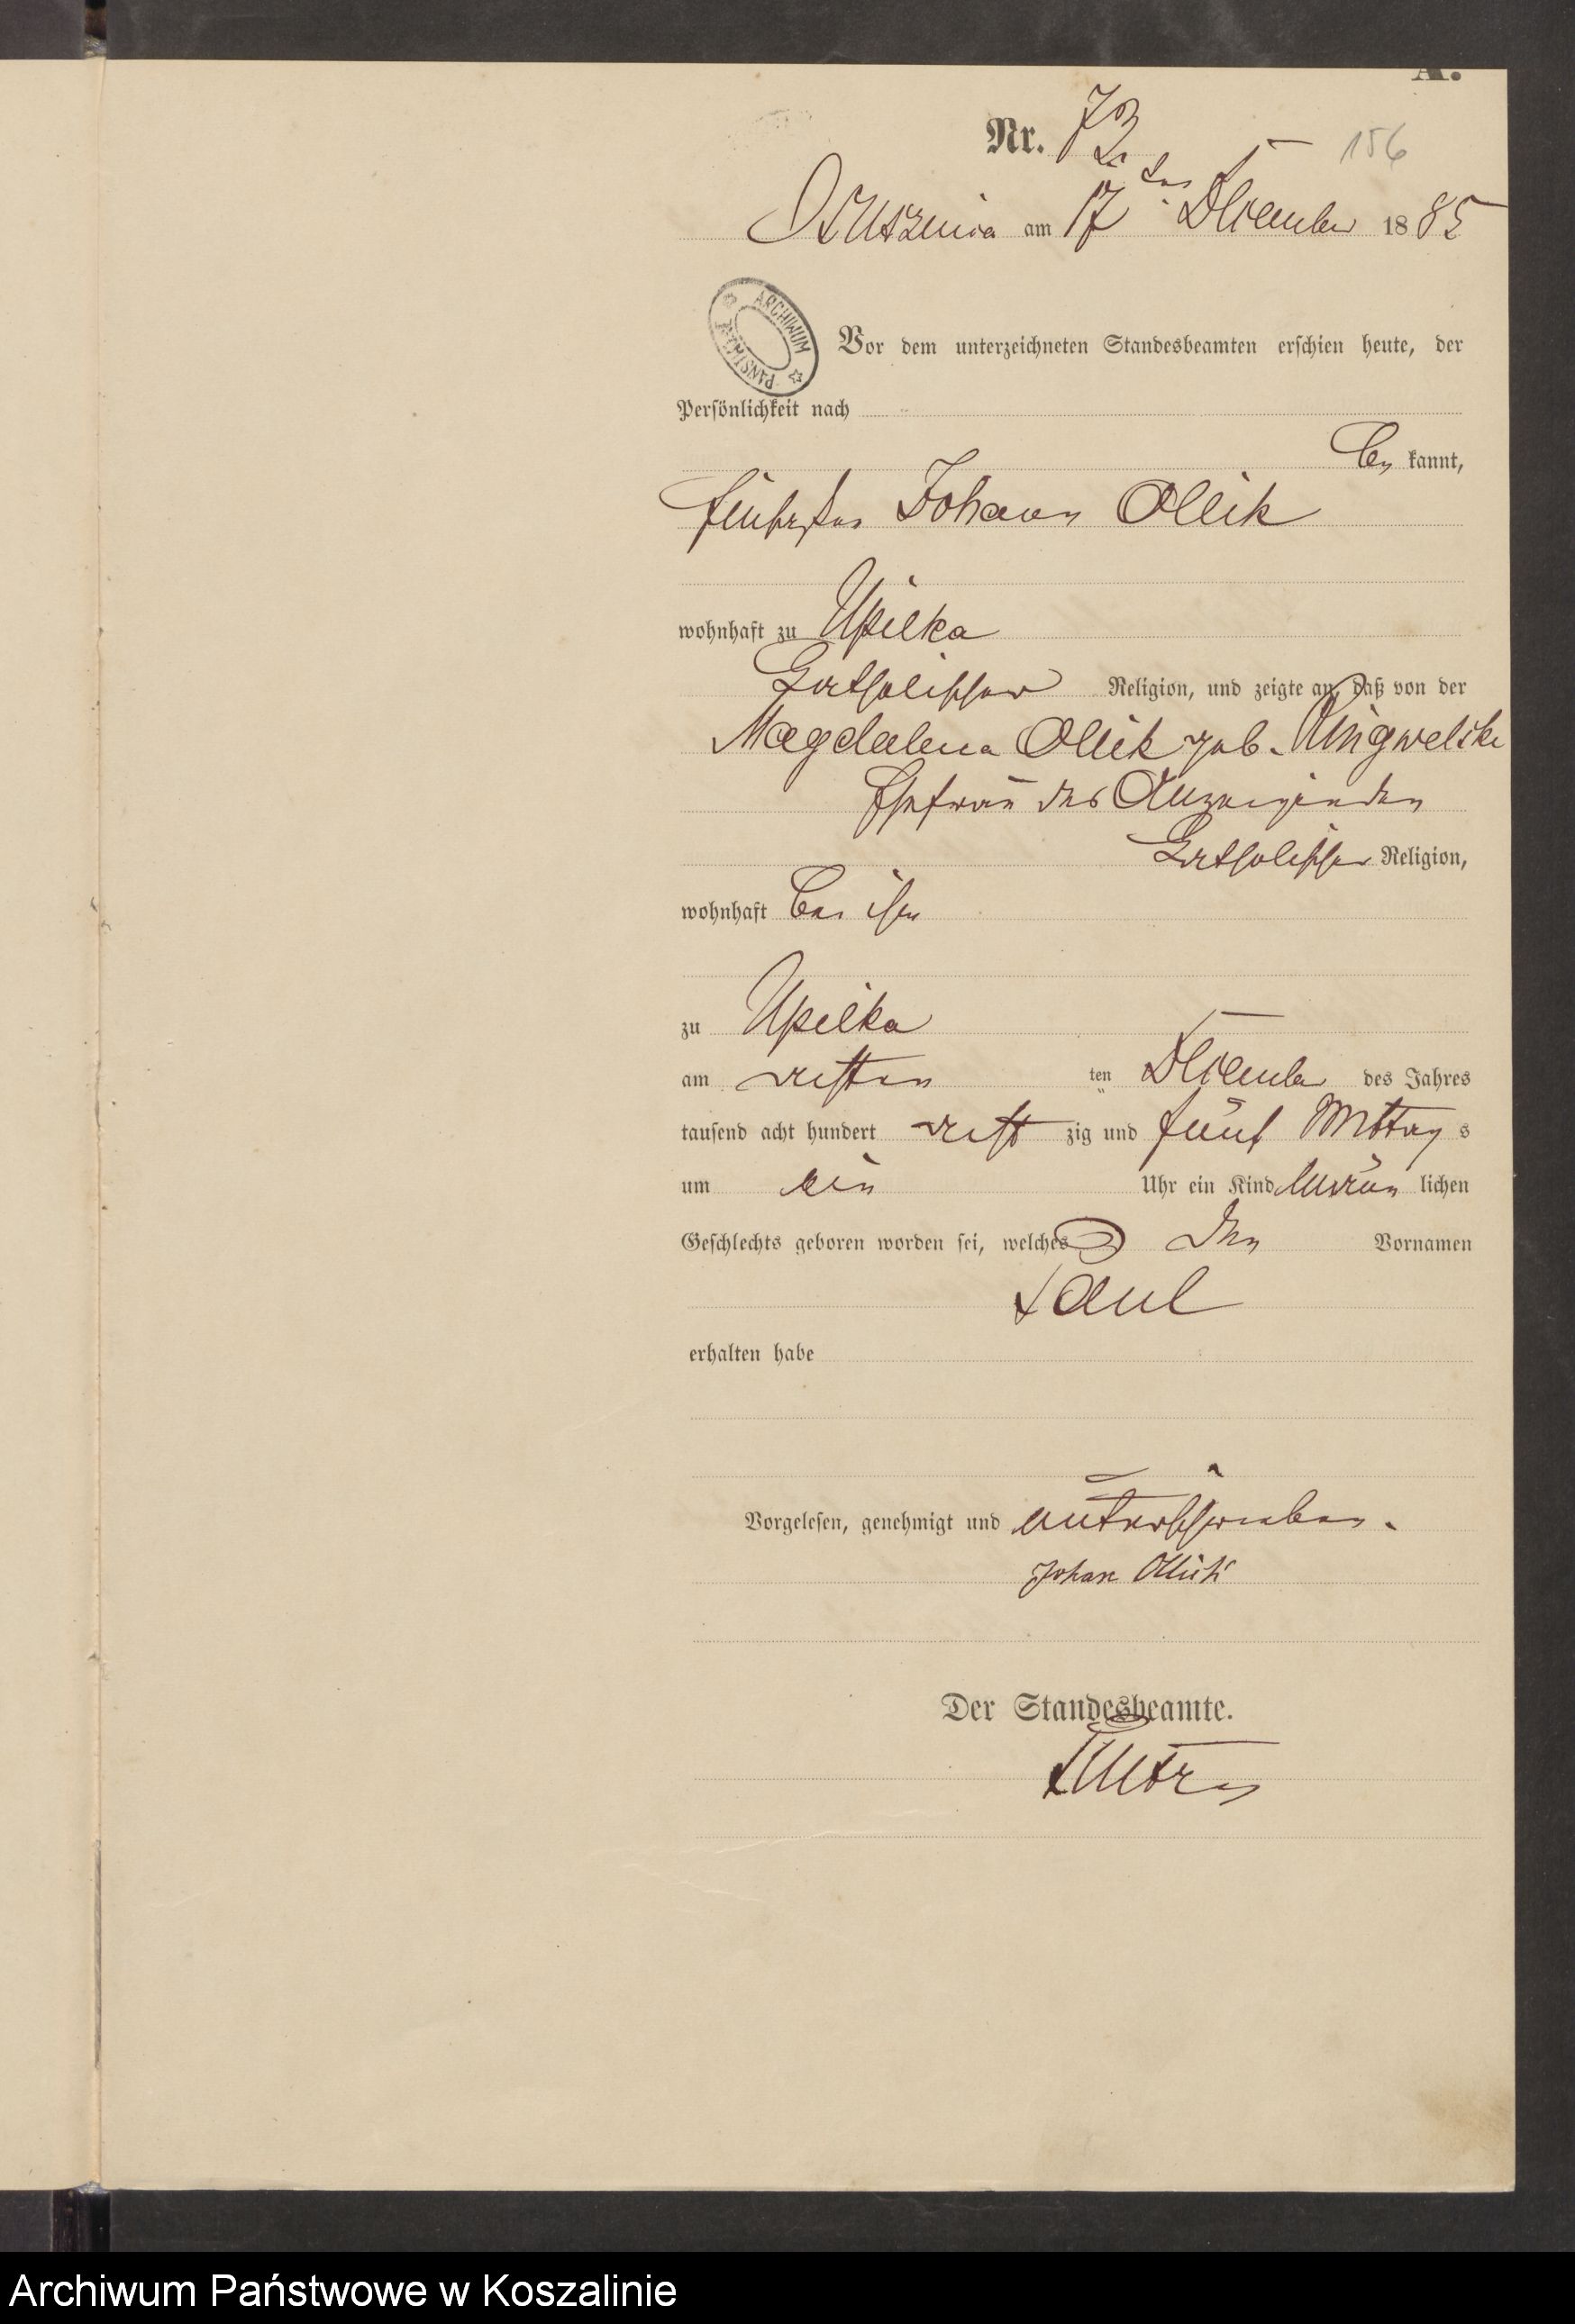 A.
Nr. 73
156
Osuszniza am 17 ten December 1885
ARCHIWUM PAŃSTWOWE
Vor dem unterzeichneten Standesbeamten erschien heute, der
Persönlichkeit nach
be kannt,
Johann Ollik
wohnhaft zu Upilka
katholischer Religion, und zeigte an, daß von der
Magdalena Ollik geb. Ringwelski
Ehefrau des Anzeigenden
katholischer Religion,
wohnhaft bei ihm
zu Upilka
am achten ten December des Jahres
tausend acht hundert acht zig und fünf Mittag s
um ein Uhr ein Kind männ lichen
Geschlechts geboren worden sei, welches den Vornamen
Paul
erhalten habe
Vorgelesen, genehmigt und unterschrieben.
Johan Ollik
Der Standesbeamte.
Archiwum Państwowe w Koszalinie